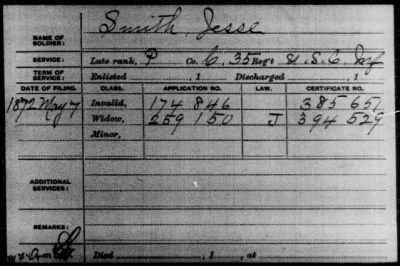 NAME OF SOLDIER: Smith, Jesse
SERVICE: Late rank, P Co. C, 35 Reg't U.S.C. Inf
TERM OF SERVICE: Enlisted , 1 Discharged , 1
DATE OF FILING. CLASS. APPLICATION NO. LAW. CERTIFICATE NO.
1872 May 7 Invalid, 174 846 385 651
Widow, 259 150 J 394 529
Minor,
ADDITIONAL SERVICES:
REMARKS:
Died , 1 , at